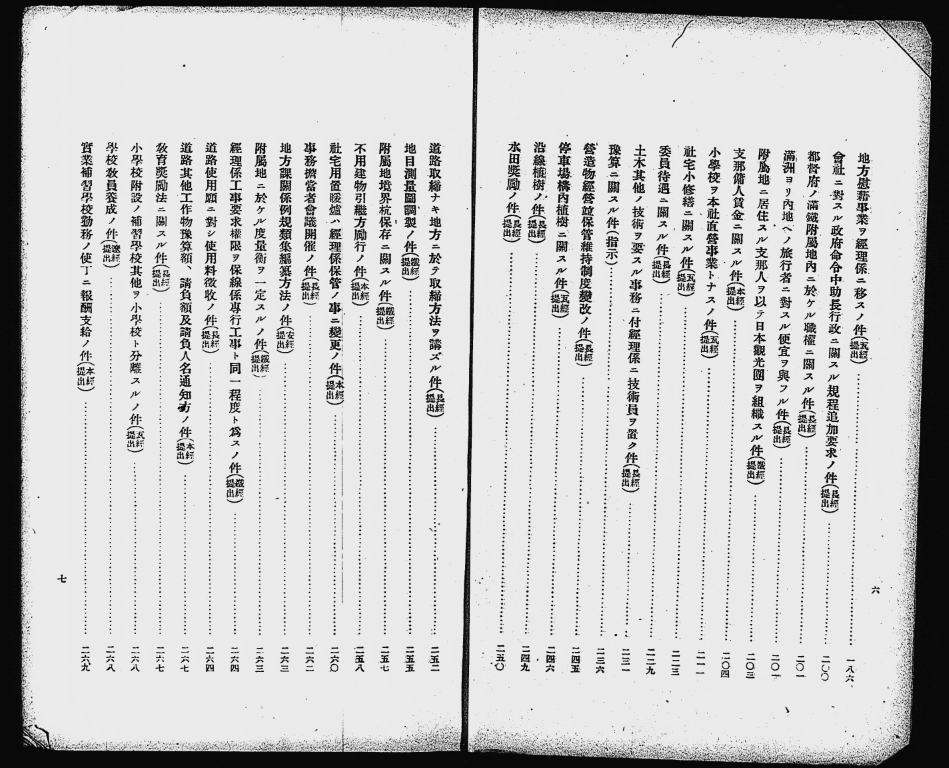 地方慰藉事業ヲ經理係ニ移スノ件(瓦經提出)……一八六
會社ニ對スル政府命令中助長行政ニ關スル規程追加要求ノ件(長經提出)……二〇〇
都督府ノ滿鐵附屬地內ニ於ケル職權ニ關スル件(長經提出)……二〇一
滿洲ヨリ內地ヘノ旅行者ニ對スル便宜ヲ與フル件(長經提出)……二〇一
附屬地ニ居住スル支那人ヲ以テ日本觀光團ヲ組織スル件(鐵經提出)……二〇三
支那傭人賃金ニ關スル件(本經提出)……二〇四
小學校ヲ本社直營事業トナスノ件(瓦經提出)……二一一
社宅小修繕ニ關スル件(瓦經提出)……二二三
委員待遇ニ關スル件(長經提出)……二二九
土木其他ノ技術ヲ要スル事務ニ付經理係ニ技術員ヲ置ク件(長經提出)……二三一
豫算ニ關スル件(指示)……二三六
營造物經營並保管維持制度變改ノ件(長經提出)……二四五
停車場構內植樹ニ關スル件(瓦經提出)……二四六
沿線植樹ノ件(長經提出)……二四九
水田奬勵ノ件(長經提出)……二五〇
六
道路取締ナキ地方ニ於テ取締方法ヲ講ズル件(長經提出)……二五二
地目測量圖調製ノ件(鐵經提出)……二五五
附屬地境界杭保存ニ關スル件(鐵經提出)……二五七
不用建物引繼方勵行ノ件(本經提出)……二五八
社宅用置暖爐ハ經理係保管ノ事ニ變更ノ件(本經提出)……二六〇
事務擔當者會議開催ノ件(長經提出)……二六二
地方課關係例規類集編纂方法ノ件(安經提出)……二六三
附屬地ニ於ケル度量衡ヲ一定スルノ件(鐵經提出)……二六三
經理係工事要求權限ヲ保線係專行工事ト同一程度ト爲スノ件(鐵經提出)……二六四
道路使用願ニ對シ使用料徵收ノ件(長經提出)……二六四
道路其他工作物豫算額、請負額及請負人名通知方ノ件(本經提出)……二六七
敎育奬勵法ニ關スル件(長經提出)……二六七
小學校附設ノ補習學校其他ヲ小學校ト分離スルノ件(瓦經提出)……二六八
學校敎員養成ノ件(遼經提出)……二六八
實業補習學校勤務ノ使丁ニ報酬支給ノ件(本經提出)……二六九
七